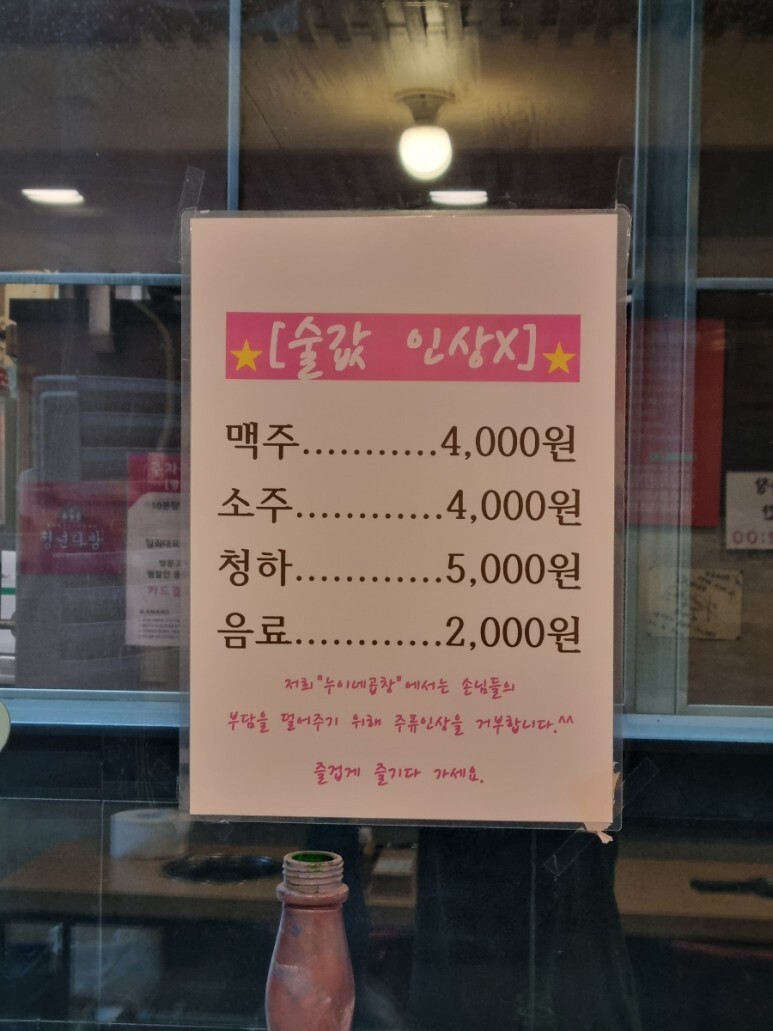 [술값 인상X]
맥주...........4,000원
소주............4,000원
청하............5,000원
음료............2,000원
저희"누이네곱창"에서는 손님들의
부담을 덜어주기 위해 주류인상을 거부합니다.^^
즐겁게 즐기다 가세요.
청년다방
10분당
카드결
00: